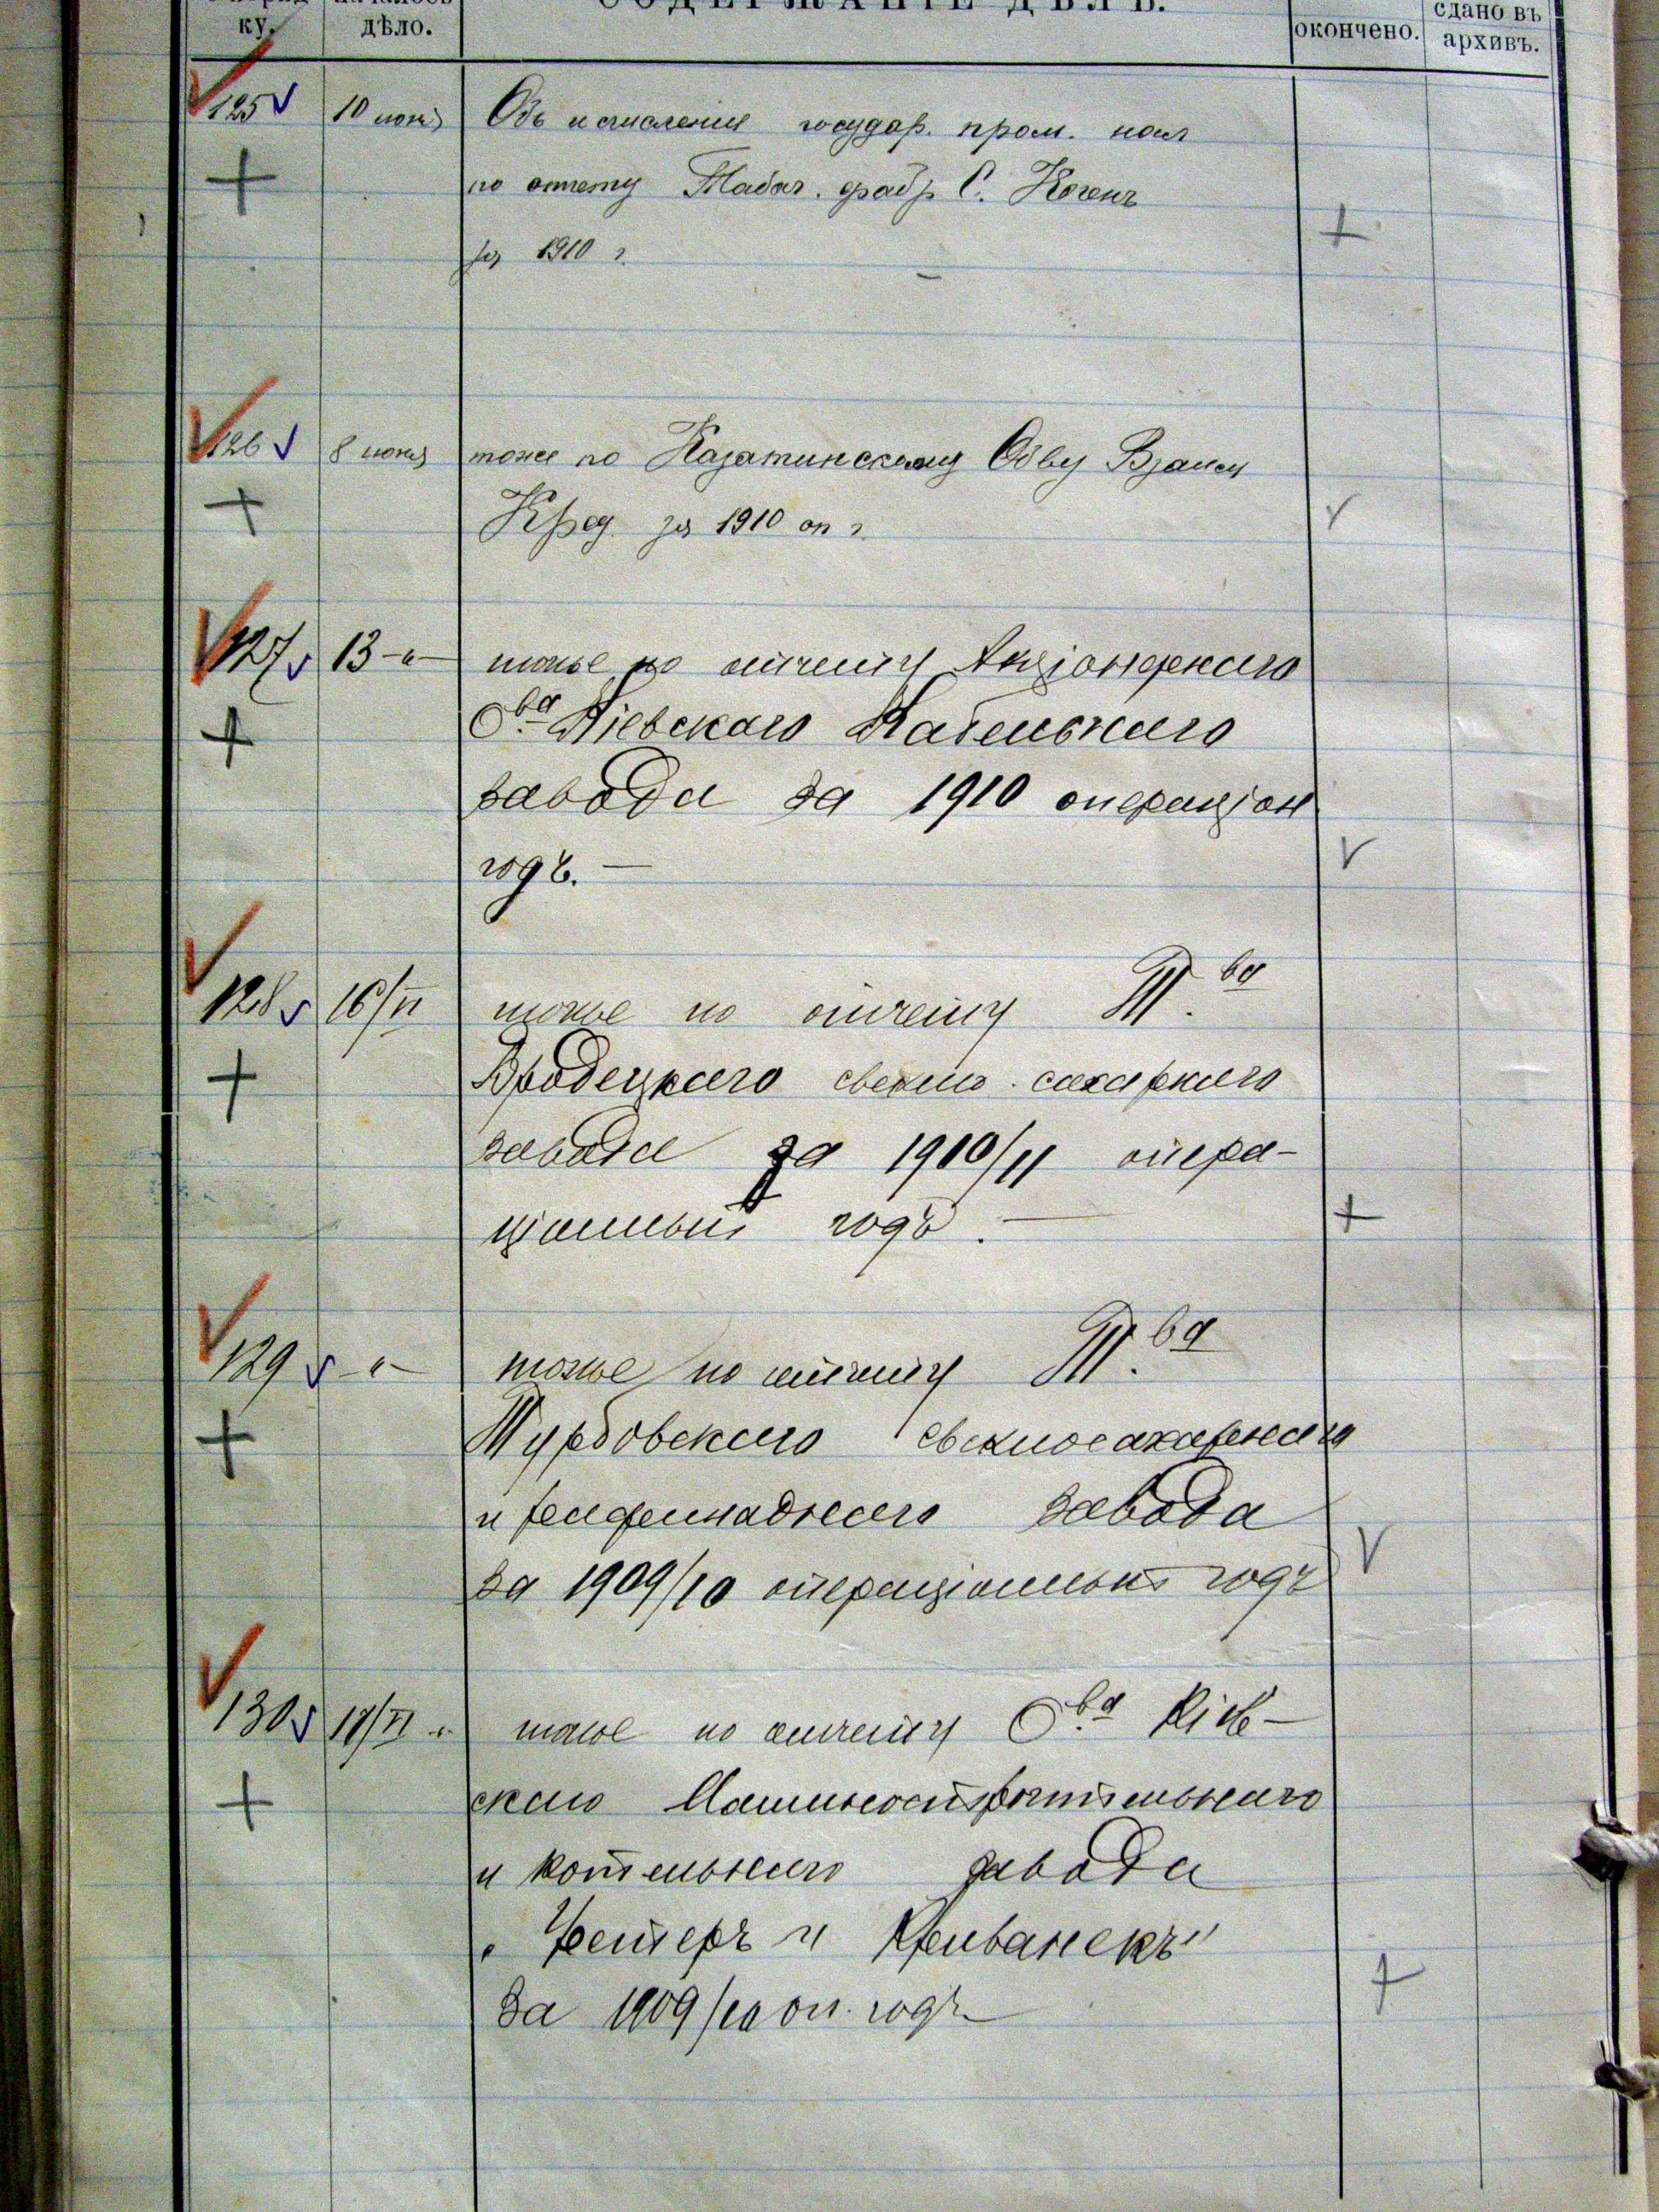 ку. дѣло. СОДЕРЖАНІЕ ДѢЛЪ. окончено. сдано въ
архивъ.
125 10 іюня Объ исчисленіи государ. пром. нал
по отчету Табач. фабр С. Когенъ
за 1910 г.
126 8 іюня тоже по Казатинскому Обву Взаим
Кред за 1910 оп г.
127 13 -"- тоже по отчету Акціонернаго
О.ва Кіевскаго Кабельнаго
завода за 1910 операціон
годъ. —
128 16/VI тоже по отчету Т.ва
Бродецкаго свекло-сахарнаго
завода за 1910/11 опера-
ціонный годъ. —
129 -"- тоже по отчету Т.ва
Турбовскаго свеклосахарнаго
и рафинаднаго завода
за 1909/10 операціонный годъ
130 17/VI " тоже по отчету О.ва Кіев-
скаго Машиностроительнаго
и котельнаго завода
„ Фетеръ и Криванекъ"
за 1909/10 оп. годъ